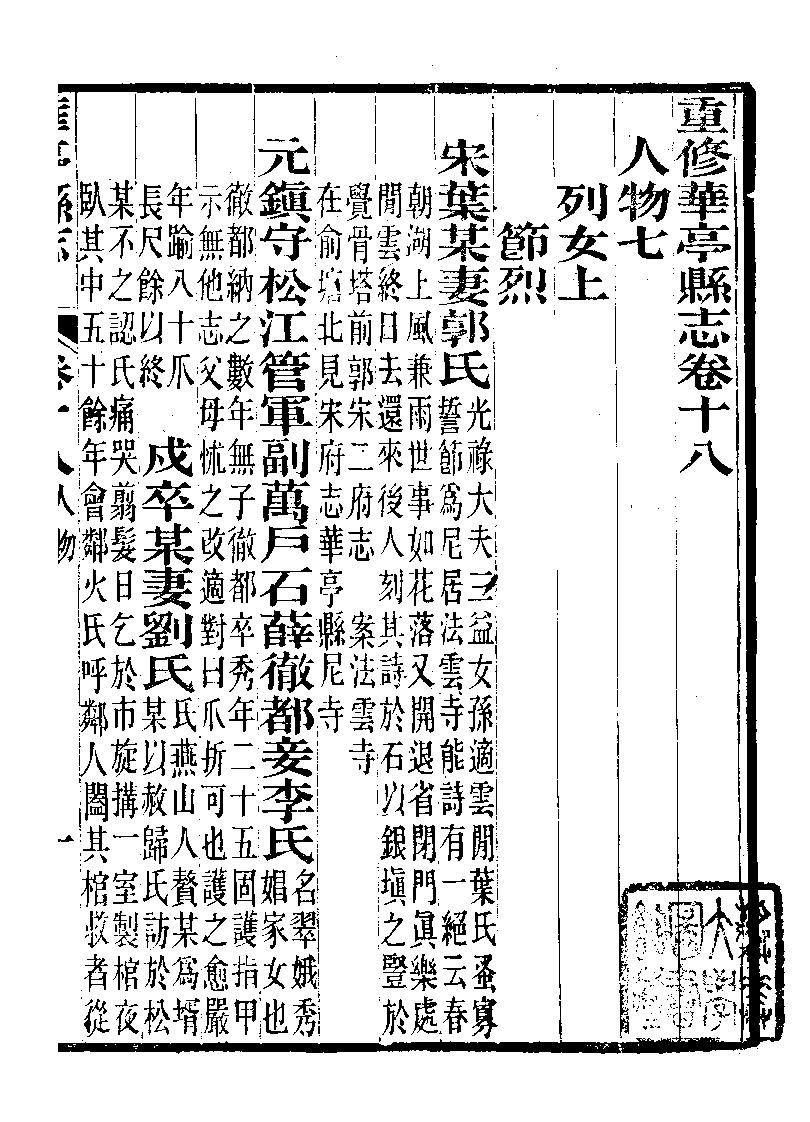 重修華亭縣志卷十八
人物七
列女上
節烈
宋葉某妻郭氏光祿大夫三益女孫適雲閒葉氏蚤寡
誓節爲尼居法雲寺能詩有一絕云春
朝湖上風兼雨世事如花落又開退省閉門眞樂處
閒雲終日去還來後人刻其詩於石以銀塡之豎於
覺骨塔前郭宋二府志 案法雲寺
在俞塘北見宋府志華亭縣尼寺
元鎭守松江管軍副萬戶石薛徹都妾李氏名翠娥秀
娼家女也
徹都納之數年無子徹都卒秀年二十五固護指甲
示無他志父母怵之改適對曰爪折可也護之愈嚴
年踰八十爪
長尺餘以終
戍卒某妻劉氏氏燕山人贅某爲壻
某以赦歸氏訪於松
某不之認氏痛哭翦髮日乞於市旋搆一室製棺夜
臥其中五十餘年會鄰火氏呼鄰人闔其棺救者從
華亭縣志 卷十八 人物 一